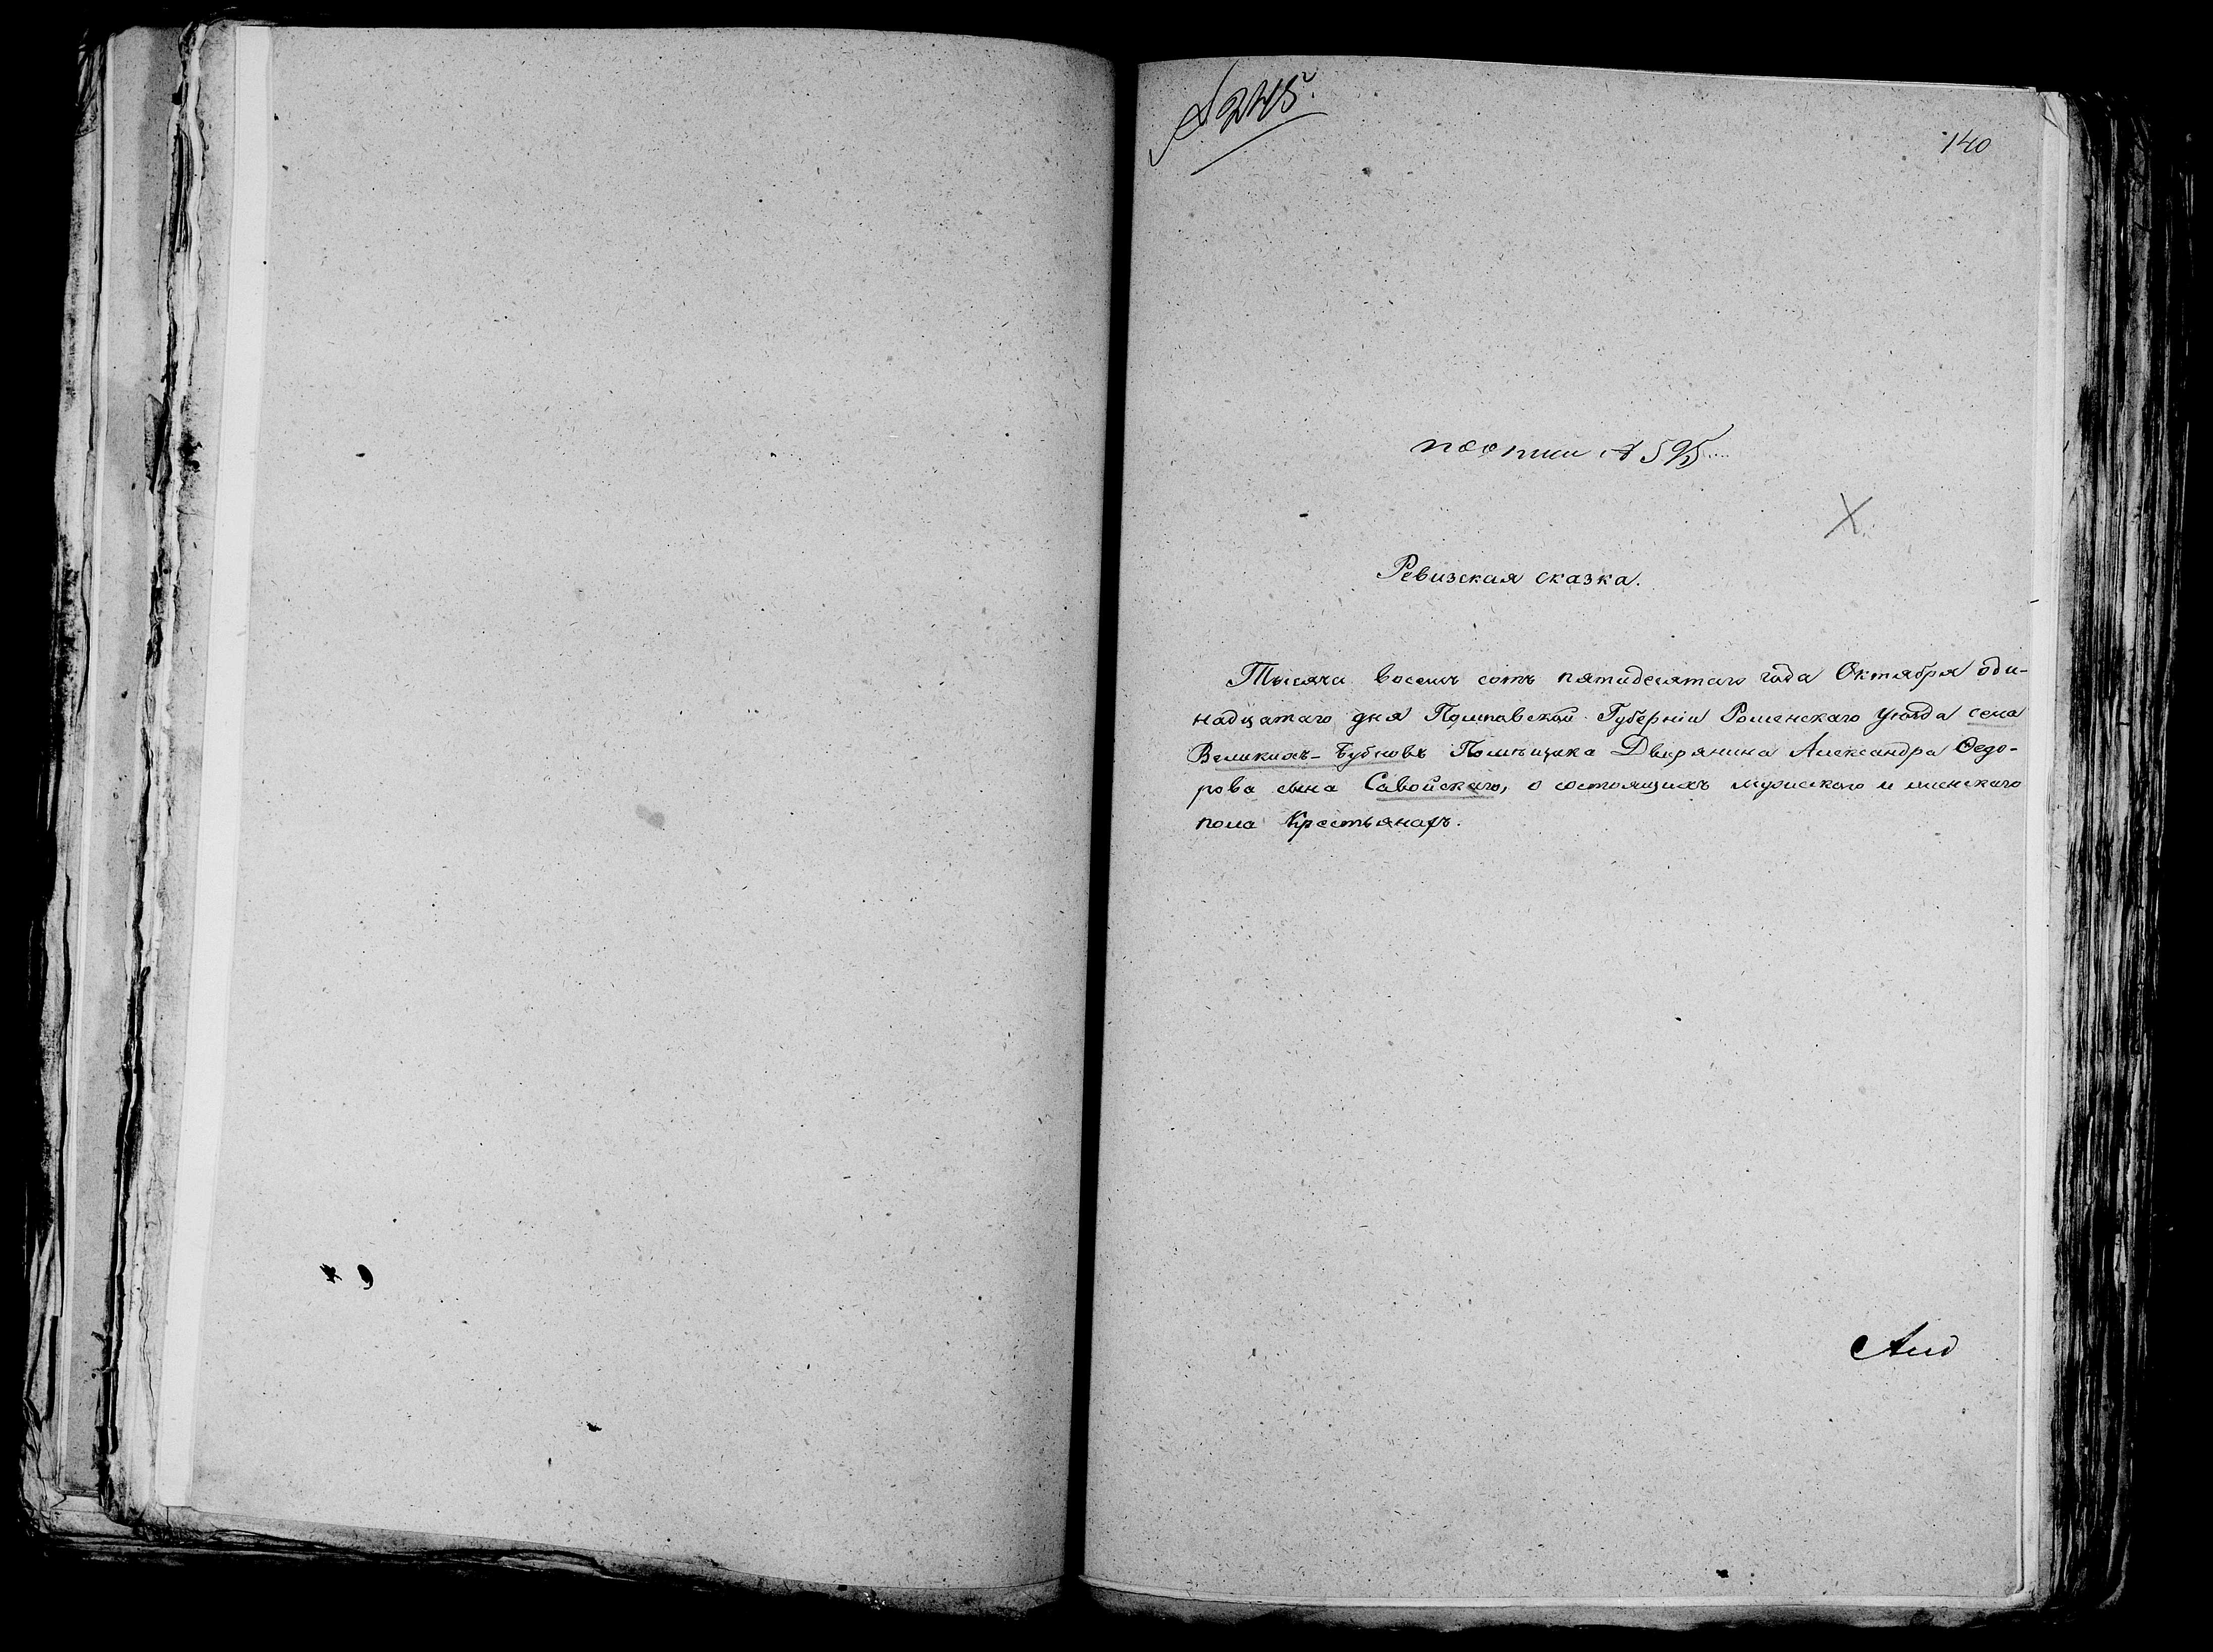 № 245.
140
по описи № 595
Х
Ревизская сказка.
Тысяча восемь сотъ пятидесятаго года Октября оди-
надцатаго дня Полтавской Губерніи Роменскаго уѣзда села
Великихъ-Бубновъ Помѣщика Дворянина Александра Ѳедо-
рова сына Савойскаго, о состоящихъ мужескаго и женскаго
пола Крестьянахъ.